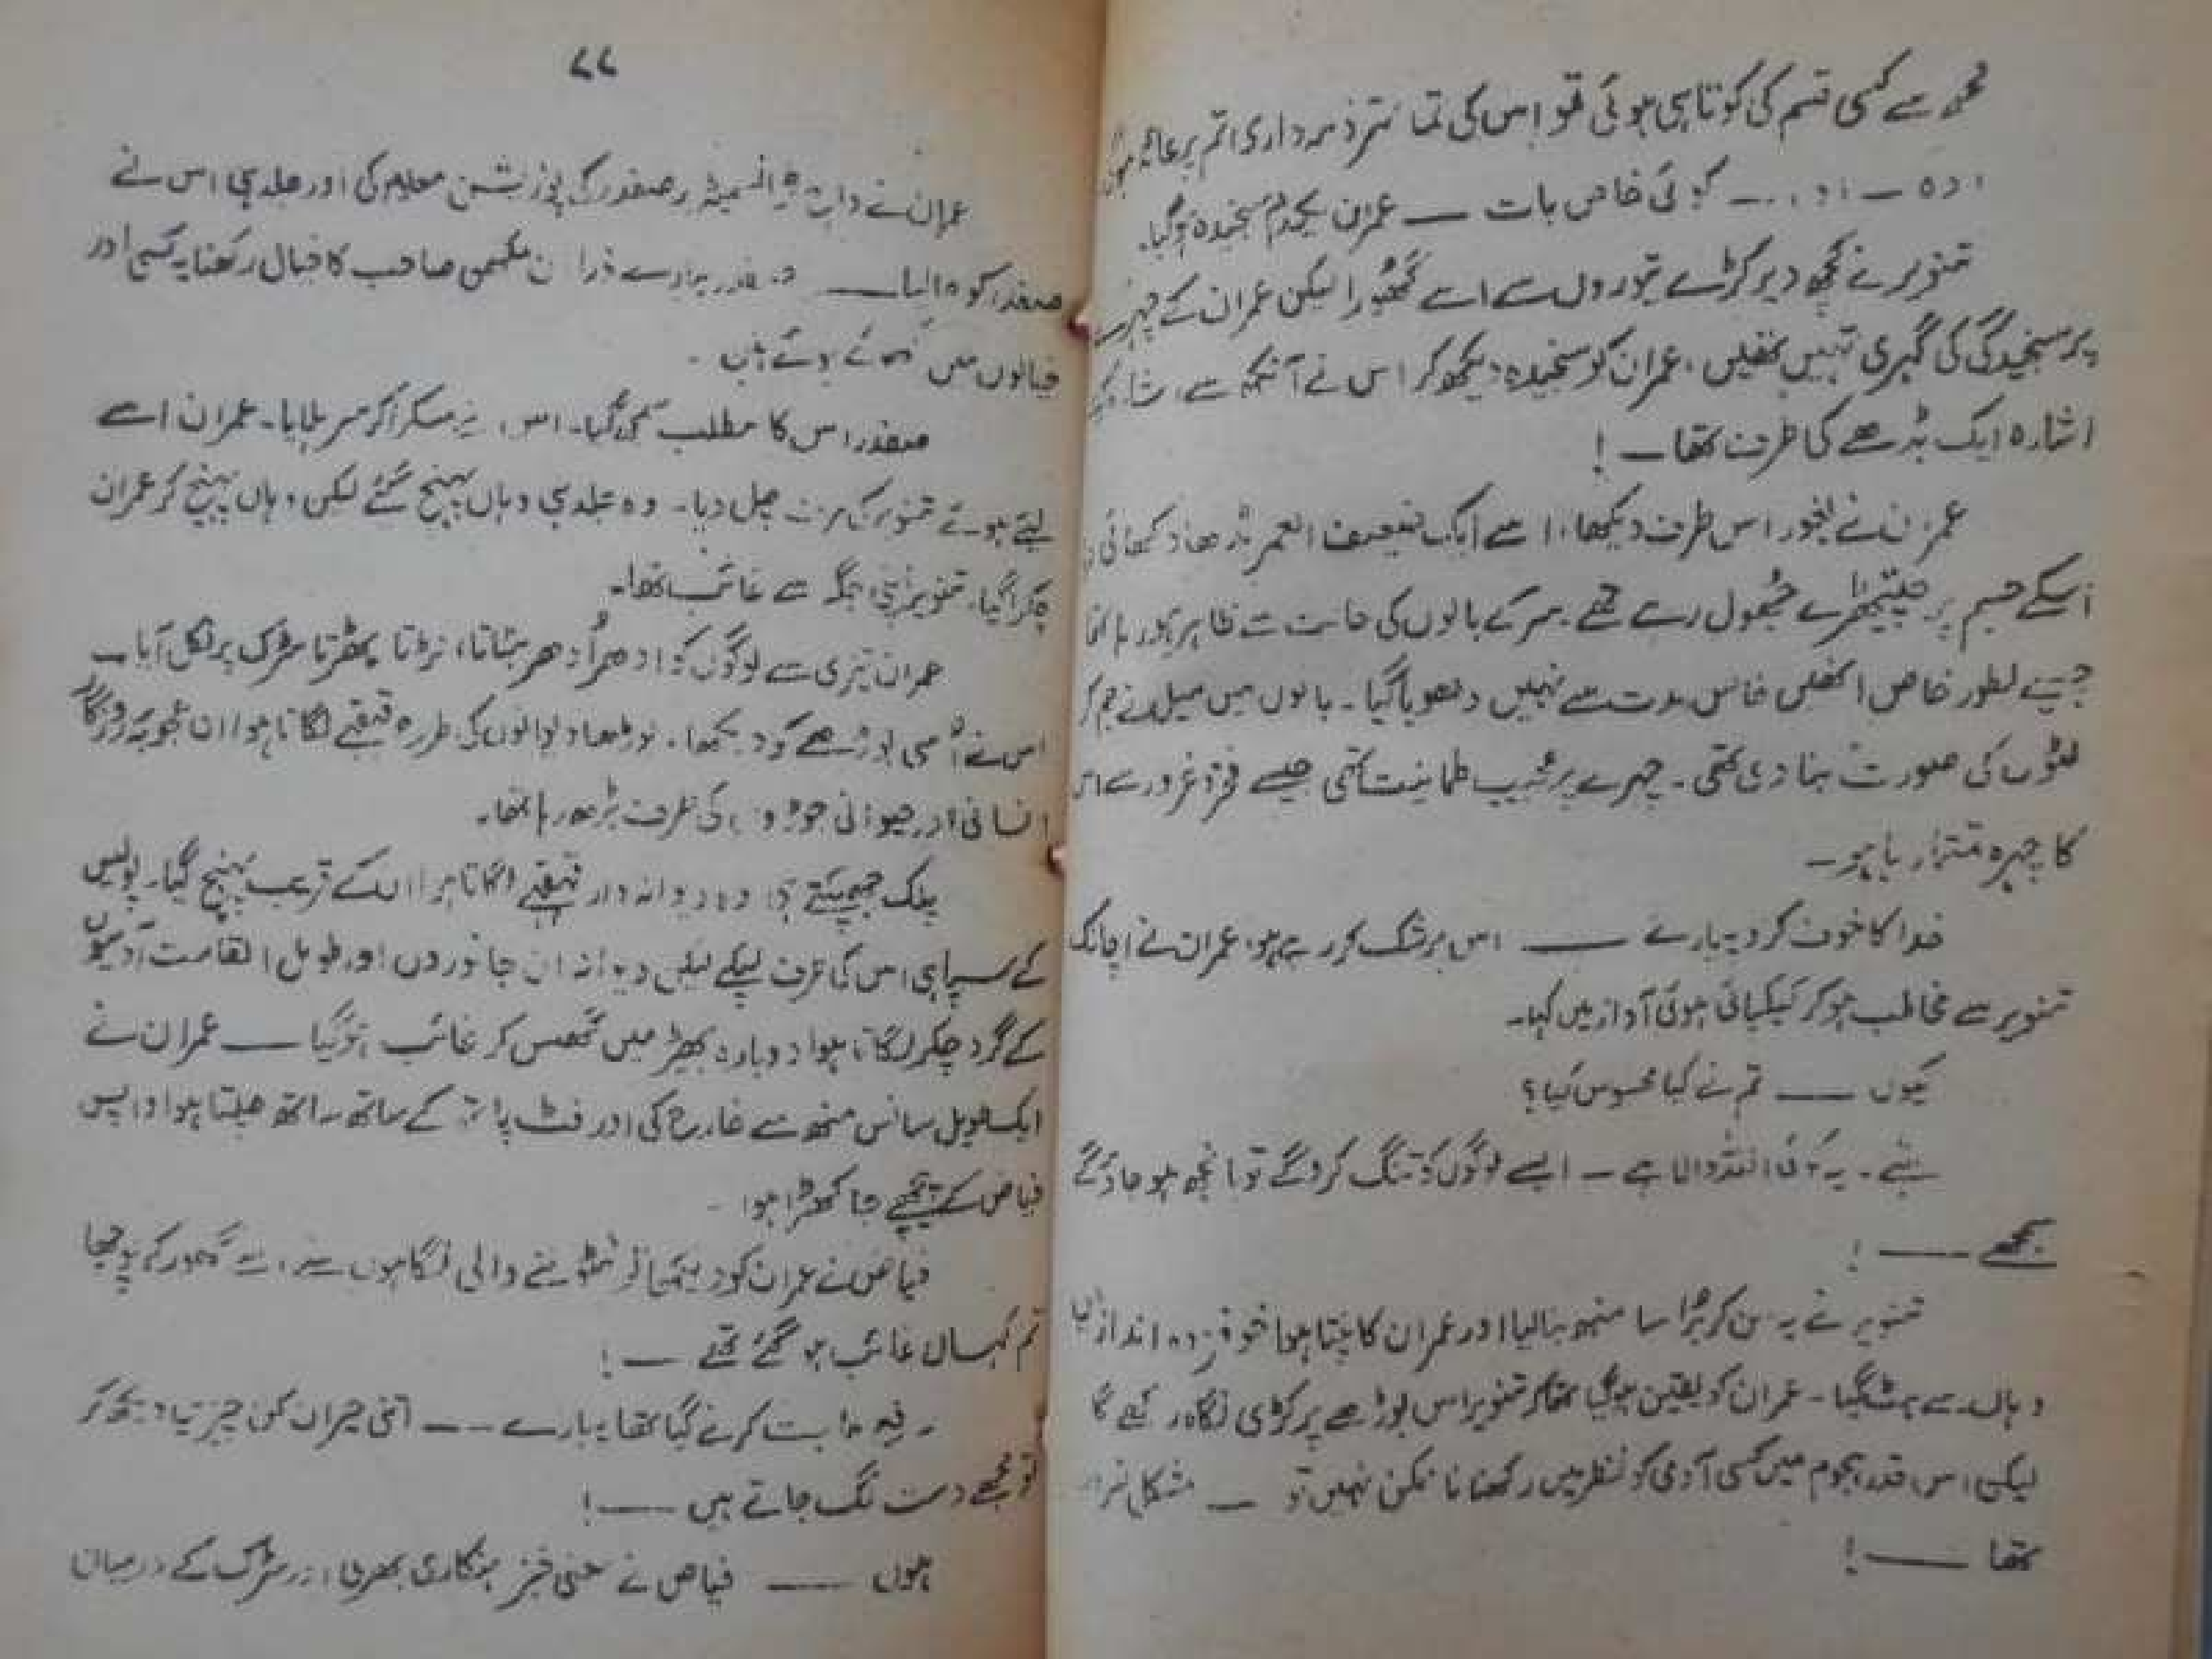 مجھ سے کسی قسم کی کوتاہی ہوئی تو اس کی تمام تر ذمہ داری تم پر عائد ہوگی
اوہ ـ اوہ ـ کوئی خاص بات ــ عمران یکدم سنجیدہ ہوگیا۔
تنویر نے کچھ دیر کڑے تیوروں سے اسے گھورا لیکن عمران کے چہرے
پر سنجیدگی کی گہری تہیں تھیں، عمران کو سنجیدہ دیکھ کر اس نے آنکھ سے اشارہ کیا
اشارہ ایک بڈھے کی طرف تھا ــ !
عمران نے بغور اس طرف دیکھا، اسے ایک ضعیف العمر بڈھا دکھائی
اسکے جسم پر چیتھڑے جھول رہے تھے۔ سر کے بالوں کی حالت سے ظاہر ہو رہا تھا
جیسے بطور خاص انھیں خاصی مدت سے نہیں دھویا گیا۔ بالوں میں میل نے جم کر
لٹوں کی صورت بنا دی تھی۔ چہرے پر عجیب طمانیت تھی جیسے فخر و غرور سے اس
کا چہرہ تمتما رہا ہو۔
خدا کا خوف کرو پیارے ــــ اس پر شک کر رہے ہو، عمران نے اچانک
تنویر سے مخاطب ہو کر کپکپاتی ہوئی آواز میں کہا۔
کیوں ــــ تم نے کیا محسوس کیا؟
یہ کوئی اللہ والا ہے ــ ایسے لوگوں کو تنگ کرو گے تو انجھ ہو جاؤ گے
سمجھے ــــ !
تنویر نے یہ سن کر برا سا منھ بنا لیا اور عمران کانپتا ہوا خوفزدہ انداز میں
وہاں سے ہٹ گیا۔ عمران کو یقین ہوگیا تھا کہ تنویر اس بوڑھے پر کڑی نگاہ رکھے گا
لیکن اس قدر ہجوم میں کسی آدمی کو نظر میں رکھنا ناممکن نہیں تو ــ مشکل ضرور
تھا ــــ !
۷۷
عمران نے واچ ٹرانسمیٹر پر صفدر کی پوزیشن معلوم کی اور جلد ہی اس نے
صفدر کو جا لیا ــــ صفدر پیارے ذرا ان صاحب کا خیال رکھنا یہ کسی اور
خیالوں میں ہوئے ہیں۔
صفدر اس کا مطلب سمجھ گیا۔ اس نے مسکرا کر سر ہلایا۔ عمران اسے
لیتے ہوئے تنویر کی طرف چل دیا۔ وہ جلد ہی وہاں پہنچ گئے لیکن وہاں پہنچ کر عمران
چکرا گیا۔ تنویر اپنی جگہ سے غائب تھا۔
عمران تیزی سے لوگوں کو ادھر اُدھر ہٹاتا، لڑتا بھڑتا سڑک پر نکل آیا۔
اس نے اُسی بوڑھے کو دیکھا، بوڑھا دیوانوں کی طرح قہقہے لگاتا ہوا ان عجوبہ روزگار
انسانی اور حیوانی جوڑوں کی طرف بڑھ رہا تھا۔
پلک جھپکتے ہی وہ دیوانہ وار قہقہے لگاتا ہوا ان کے قریب پہنچ گیا۔ پولیس
کے سپاہی اس کی طرف لپکے لیکن دیوانہ ان جانوروں اور طویل القامت آدمیوں
کے گرد چکر لگاتا ہوا دوبارہ بھیڑ میں گھس کر غائب ہوگیا ــــ عمران نے
ایک طویل سانس منھ سے خارج کی اور فٹ پاتھ کے ساتھ ساتھ چلتا ہوا واپس
فیاض کے پیچھے جا کھڑا ہوا۔
فیاض نے عمران کو دیکھا تو ٹٹولنے والی نگاہوں سے اسے گھور کے پوچھا
تم کہاں غائب ہو گئے تھے ــ !
رفع حاجت کرنے گیا تھا پیارے ــ اتنی حیران کن چیز یا دیکھ کر
تو مجھے دست لگ جاتے ہیں ــــ !
ہوں ــــ فیاض نے معنی خیز ہنکاری بھری اور سڑک کے درمیان